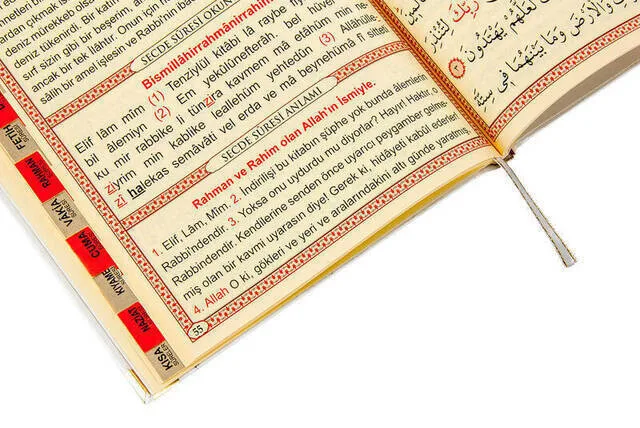 deniz tükendi.
sırf sizin gibi bir beşerim, an
ancak bir tek İlahtır. Onun için h
salih bir amel işlesin ve Rabbin'in ibad
SECDE SÛRESİ OKUN
Bismillâhirrahmânirrahîm
Elif lâm mîm (1) Tenzîylül kitâbi lâ raybe fî
bil âlemiyn (2) Em yekûlûnefterâh. bel hüvel
ku mir rabbike li tünzira kavmem mâ etâhüm min ne
ziyrim min kablike leallehüm yehtedûn (3) Allâhülle
zî halekas semâvâti vel erda ve mâ beynehümâ fî sittet
SECDE SÛRESİ ANLAMI
Rahman ve Rahim olan Allah'ın ismiyle.
1. Elif, Lâm, Mîm. 2. İndirilişi bu kitabın şüphe yok bunda âlemlerin
Rabbi'ndendir. 3. Yoksa onu uydurdu mu diyorlar? Hayır! Haktır, o
Rabbindendir. Kendilerine senden önce uyarıcı peygamber gelme-
miş olan bir kavmi uyarasın diye! Gerek ki, hidâyeti kabûl ederler!
4. Allah O ki, gökleri ve yeri ve aralarındakini altı günde yaratmış,
55
FETİH
RAHMAN
VAKIA
CUMA
KIYAME
NAZİAT
KISA
SÛRELER
رَبِّكَ لِتُنْذِرَ
لَعَلَّهُمْ يَهْتَدُونَ
وَالْأَرْضَ وَمَا بَيْنَهُمَا فِي سِتَّةِ